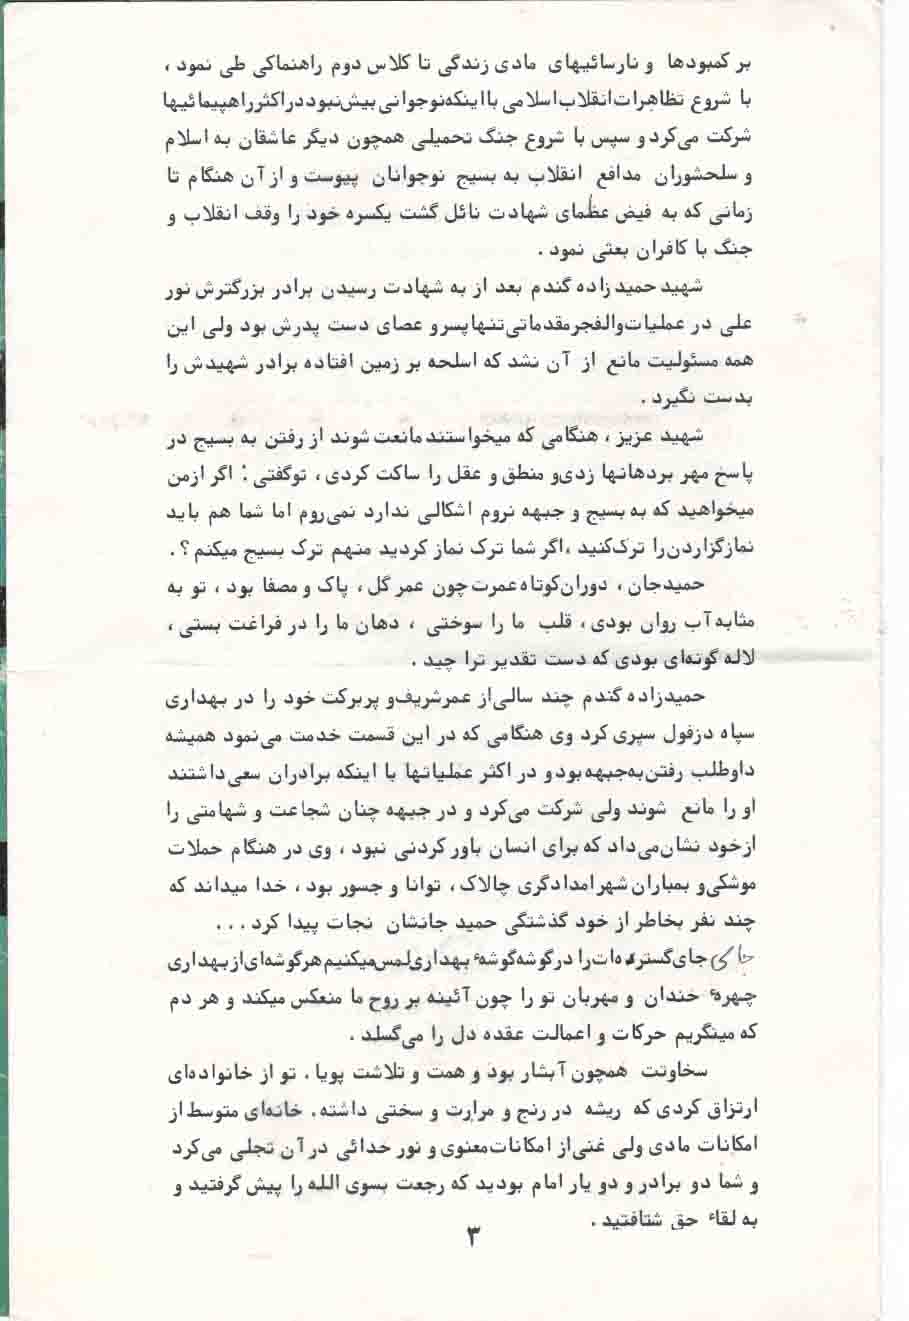 بر کمبودها و نارسائیهای مادی زندگی تا کلاس دوم راهنمائی طی نمود ،
با شروع تظاهرات انقلاب اسلامی با اینکه نوجوانی بیش نبود در اکثر راهپیمائیها
شرکت می‌کرد و سپس با شروع جنگ تحمیلی همچون دیگر عاشقان به اسلام
و سلحشوران مدافع انقلاب به بسیج نوجوانان پیوست و از آن هنگام تا
زمانی که به فیض عظمای شهادت نائل گشت یکسره خود را وقف انقلاب و
جنگ با کافران بعثی نمود .
شهید حمید زاده گندم بعد از به شهادت رسیدن برادر بزرگترش نور
علی در عملیات والفجر مقدماتی تنها پسر و عصای دست پدرش بود ولی این
همه مسئولیت مانع از آن نشد که اسلحه بر زمین افتاده برادر شهیدش را
بدست نگیرد .
شهید عزیز ، هنگامی که میخواستند مانعت شوند از رفتن به بسیج در
پاسخ مهر بردهانها زدی و منطق و عقل را ساکت کردی ، توگفتی : اگر ازمن
میخواهید که به بسیج و جبهه نروم اشکالی ندارد نمی‌روم اما شما هم باید
نمازگزاردن را ترک‌کنید ،اگر شما ترک نماز کردید منهم ترک بسیج میکنم ؟ .
حمیدجان ، دوران کوتاه عمرت چون عمر گل ، پاک و مصفا بود ، تو به
مثابه آب روان بودی ، قلب ما را سوختی ، دهان ما را در فراغت بستی ،
لاله گونه‌ای بودی که دست تقدیر ترا چید .
حمیدزاده گندم چند سالی از عمرشریف و پربرکت خود را در بهداری
سپاه دزفول سپری کرد وی هنگامی که در این قسمت خدمت می‌نمود همیشه
داوطلب رفتن به‌جبهه بود و در اکثر عملیاتها با اینکه برادران سعی داشتند
او را مانع شوند ولی شرکت می‌کرد و در جبهه چنان شجاعت و شهامتی را
ازخود نشان می‌داد که برای انسان باور کردنی نبود ، وی در هنگام حملات
موشکی و بمباران شهر امدادگری چالاک ، توانا و جسور بود ، خدا میداند که
چند نفر بخاطر از خود گذشتگی حمید جانشان نجات پیدا کرد ...
جای گسترده‌ات را در گوشه گوشهٔ بهداری لمس میکنیم هرگوشه‌ای از بهداری
چهرهٔ خندان و مهربان تو را چون آئینه بر روح ما منعکس میکند و هر دم
که مینگریم حرکات و اعمالت عقده دل را می‌گسلد .
سخاوتت همچون آبشار بود و همت و تلاشت پویا . تو از خانواده‌ای
ارتزاق کردی که ریشه در رنج و مرارت و سختی داشته . خانه‌ای متوسط از
امکانات مادی ولی غنی از امکانات معنوی و نور خدائی در آن تجلی می‌کرد
و شما دو برادر و دو یار امام بودید که رجعت بسوی الله را پیش گرفتید و
به لقاء حق شتافتید .
۳